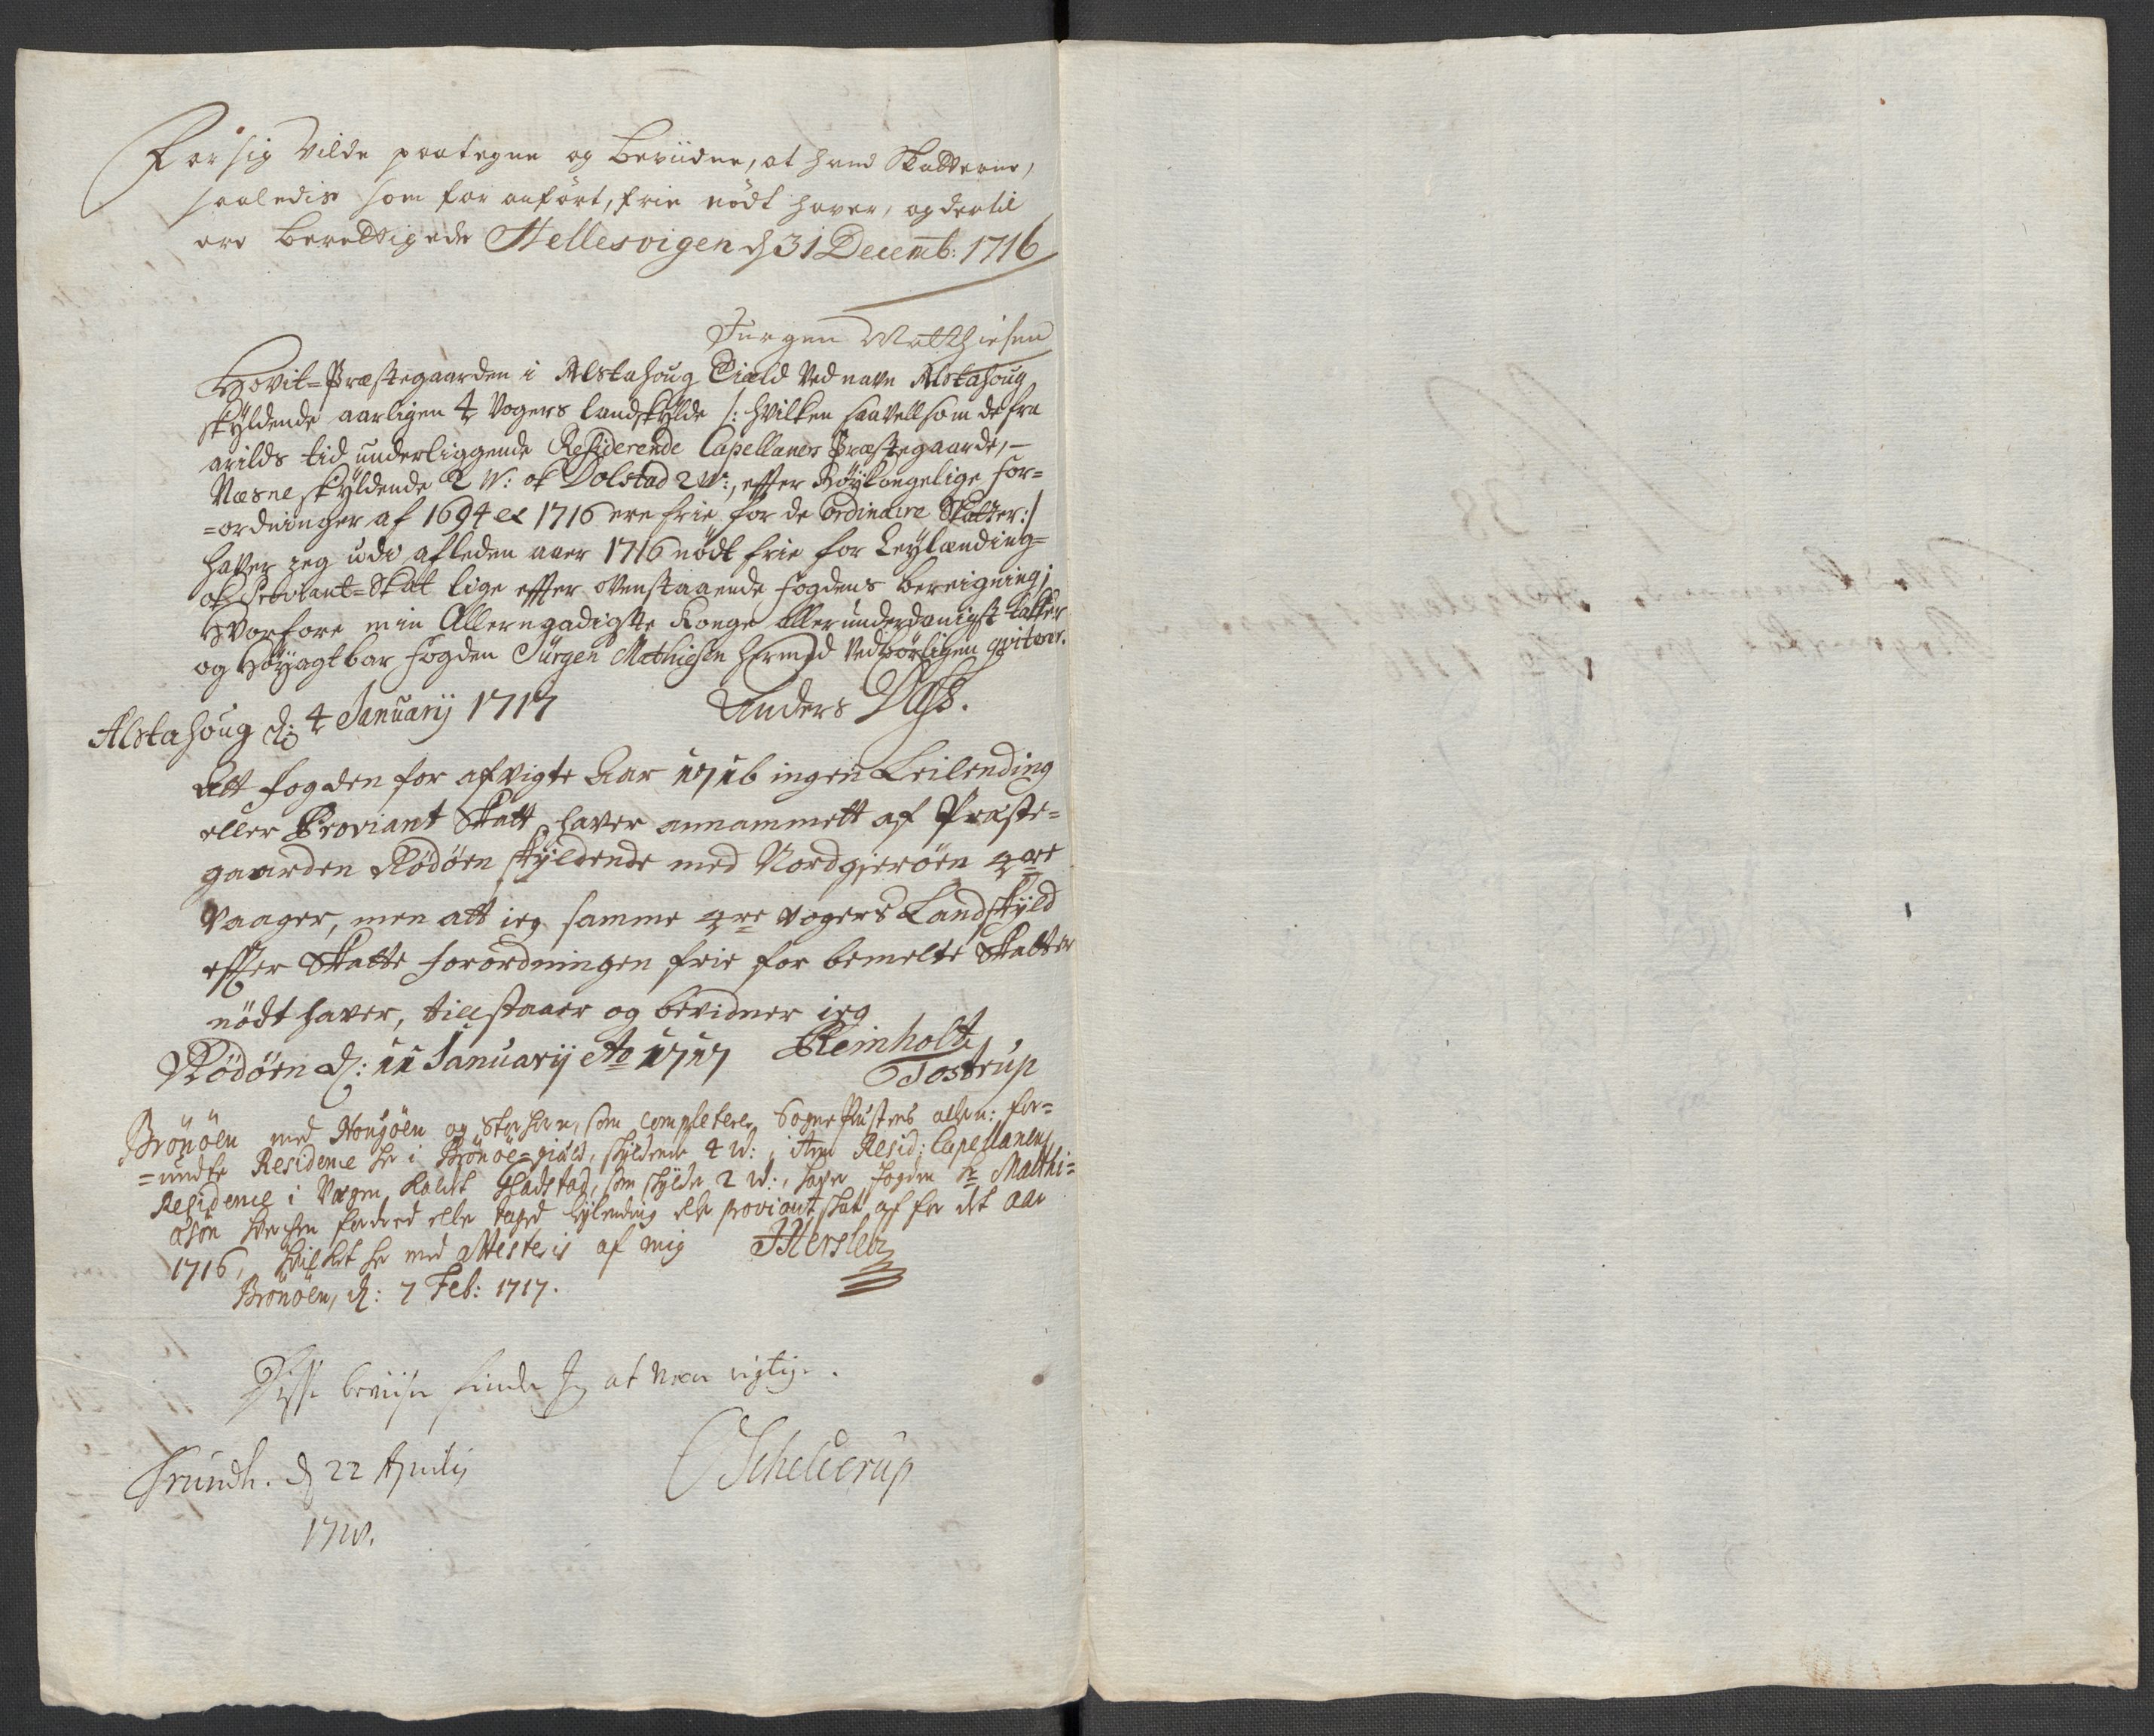 For sig vilde paategne og beviidne, at hand Skatterne,
saaledis som for anført, frie nødt haver, og dertil
ere berettigede Hellesvigen d 31 Decemb: 1716
Jurgen Matthiesen
Hovit=Præstegaarden i Alstahoug Gield ved navn Alstahoug
skÿldende aarligen 4 Vogers landskÿlde /: hvilken saavell som de fra
arilds tid underliggende Residerende Capellaners Præstegaarde,
Næsne skÿldende 2 W: ok Dolstad 2 W:, effter Kongelige For=
=ordninger af 1694 et 1716 ere frie for de ordinaire Skatter :/
haver jeg udi afleden aaer 1716 nødt frie for Leÿlænding=
ok Proviant=Skat lige effter ovenstaaende Fogdens bereigning;
Hvorfore min Allernaadigste Konge allerunderdanigst takker
og Høÿagtbar Fogden Jürgen Mathiesen hermed vedbørligen qviterer.
Alstahoug d: 4 Januarÿ 1717 Anders Dass.
Att Fogden for afvigte Aar 1716 ingen Leilending
eller Proviant Skatt haver annammett af Præste=
gaarden Rødøen skÿldende med Nordgjerøen 4re
Vaager, men att ieg samme 4re vogers Landskÿld
effter Skatte forordningen frie for bemelte Skatter
nødt haver, tillstaaer og bevidner ieg
Rødøen d: 11 Januarÿ Ao 1717 Reinholt
Tostrup
Brönöen med og som completerer Sogne Præstens allern: for=
=undte Residence her i Brönöe=gield, skÿldende 4 W:, item Resid: Capellanens
Residence i Vægen kaldet som skÿlder 2 W:, haver Fogden Sr Matthi=
asön fordred eller taged leÿlending eller proviant skat af for det Aar
1716, hvilket her med attesteris af mig JHersleb
Brönöen, d: 7 Feb: 1717.
Disse beviiser finder Jeg at være rigtige.
Trundh. d 22 Aprilij OSchelderup